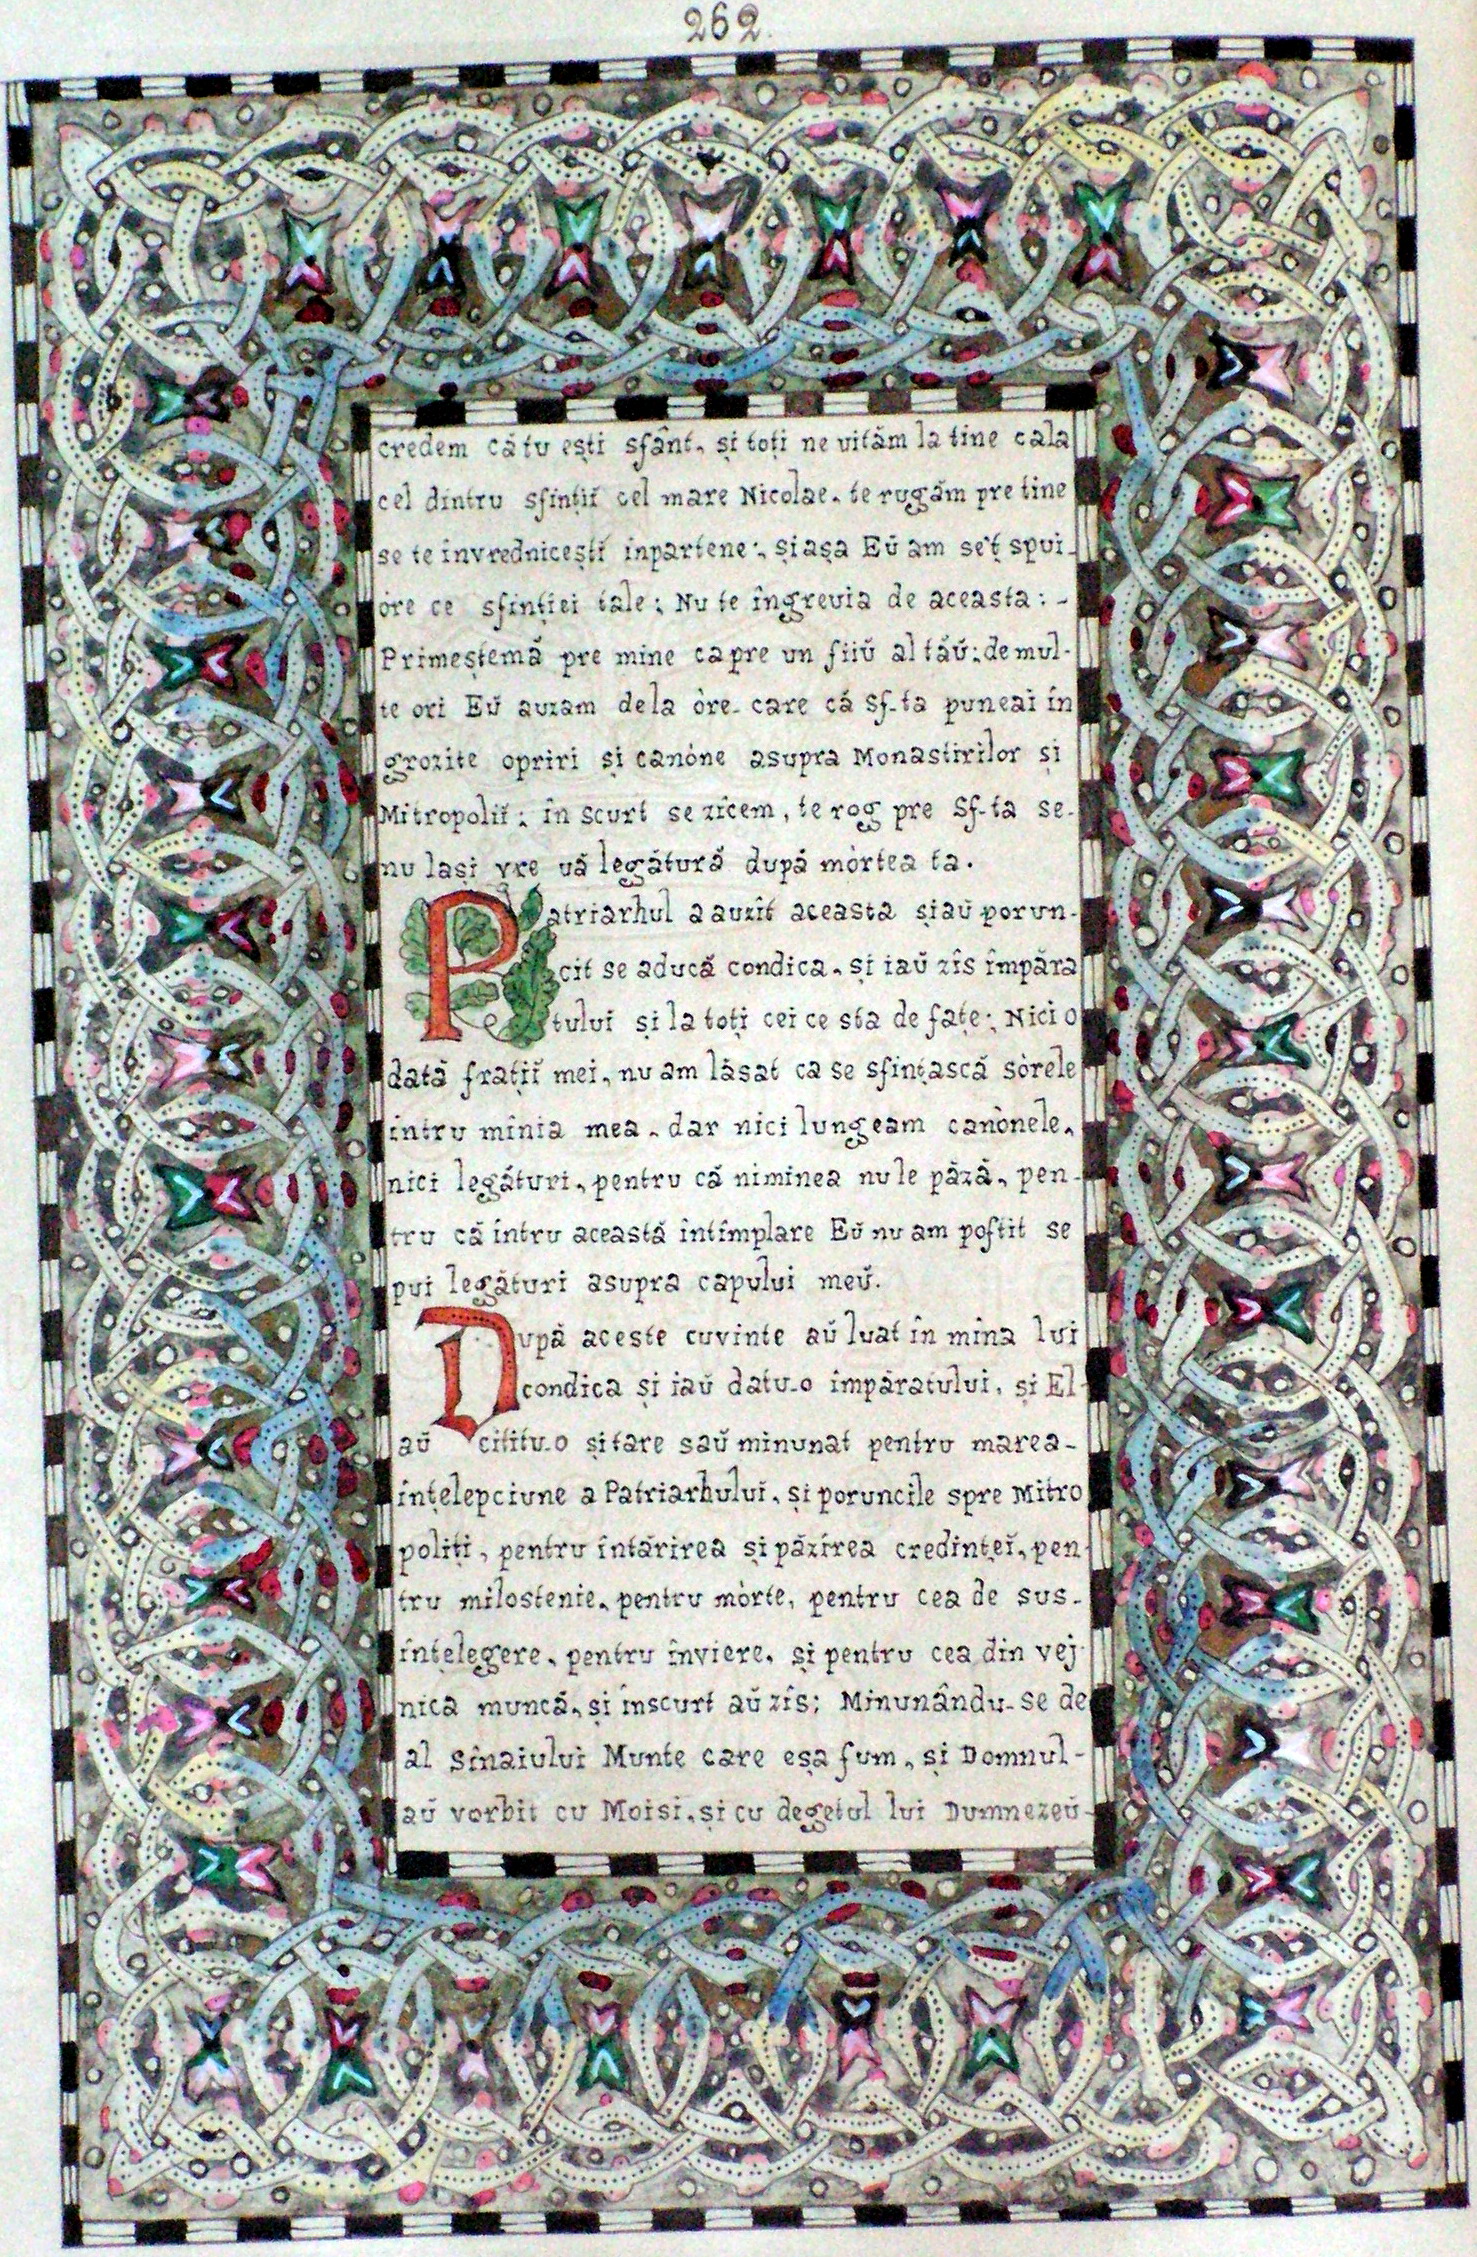 262.
credem că tu ești sfânt, și toți ne uităm la tine cala
cel dintru sfinții cel mare Nicolae, te rugăm pre tine
se te învrednicești inpartene:, și așa Eŭ am se'ț spui-
ore ce sfinției tale; Nu te îngrevia de aceasta:-
Primeștemă pre mine ca pre un fiiŭ al tăŭ; de mul-
te ori Eŭ auzam dela òre-care că Sf-ta puneai în
grozite opriri și canòne asupra Monastirilor și
Mitropolii; în scurt se zicem, te rog pre Sf-ta se-
nu lași vre uă legătură după mòrtea ta.
Patriarhul a auzît aceasta și aŭ porun-
cit se aducă condica, și iaŭ zîs împăra
tului și la toți cei ce sta de fațe; Nici o
dată frații mei, nu am lăsat ca se sfințască sòrele
intru mînia mea, dar nici lungeam canònele,
nici legături, pentru că niminea nu le păză, pen-
tru că intru această întîmplare Eŭ nu am poftit se
pui legături asupra capului meŭ.
După aceste cuvinte aŭ luat în mîna lui
condica și iaŭ datu-o împăratului, și El-
aŭ cititu-o și tare saŭ minunat pentru marea-
înțelepciune a Patriarhului, și poruncile spre Mitro
politi, pentru întărirea și păzirea credinței, pen-
tru milostenie, pentru mòrte, pentru cea de sus-
înțelegere, pentru înviere, și pentru cea din vej-
nica muncă, și înscurt aŭ zîs; Minunându-se de
al Sînaiului Munte care eșa fum, și Domnul-
aŭ vorbit cu Moisi, și cu degetul lui Dumnezeŭ-